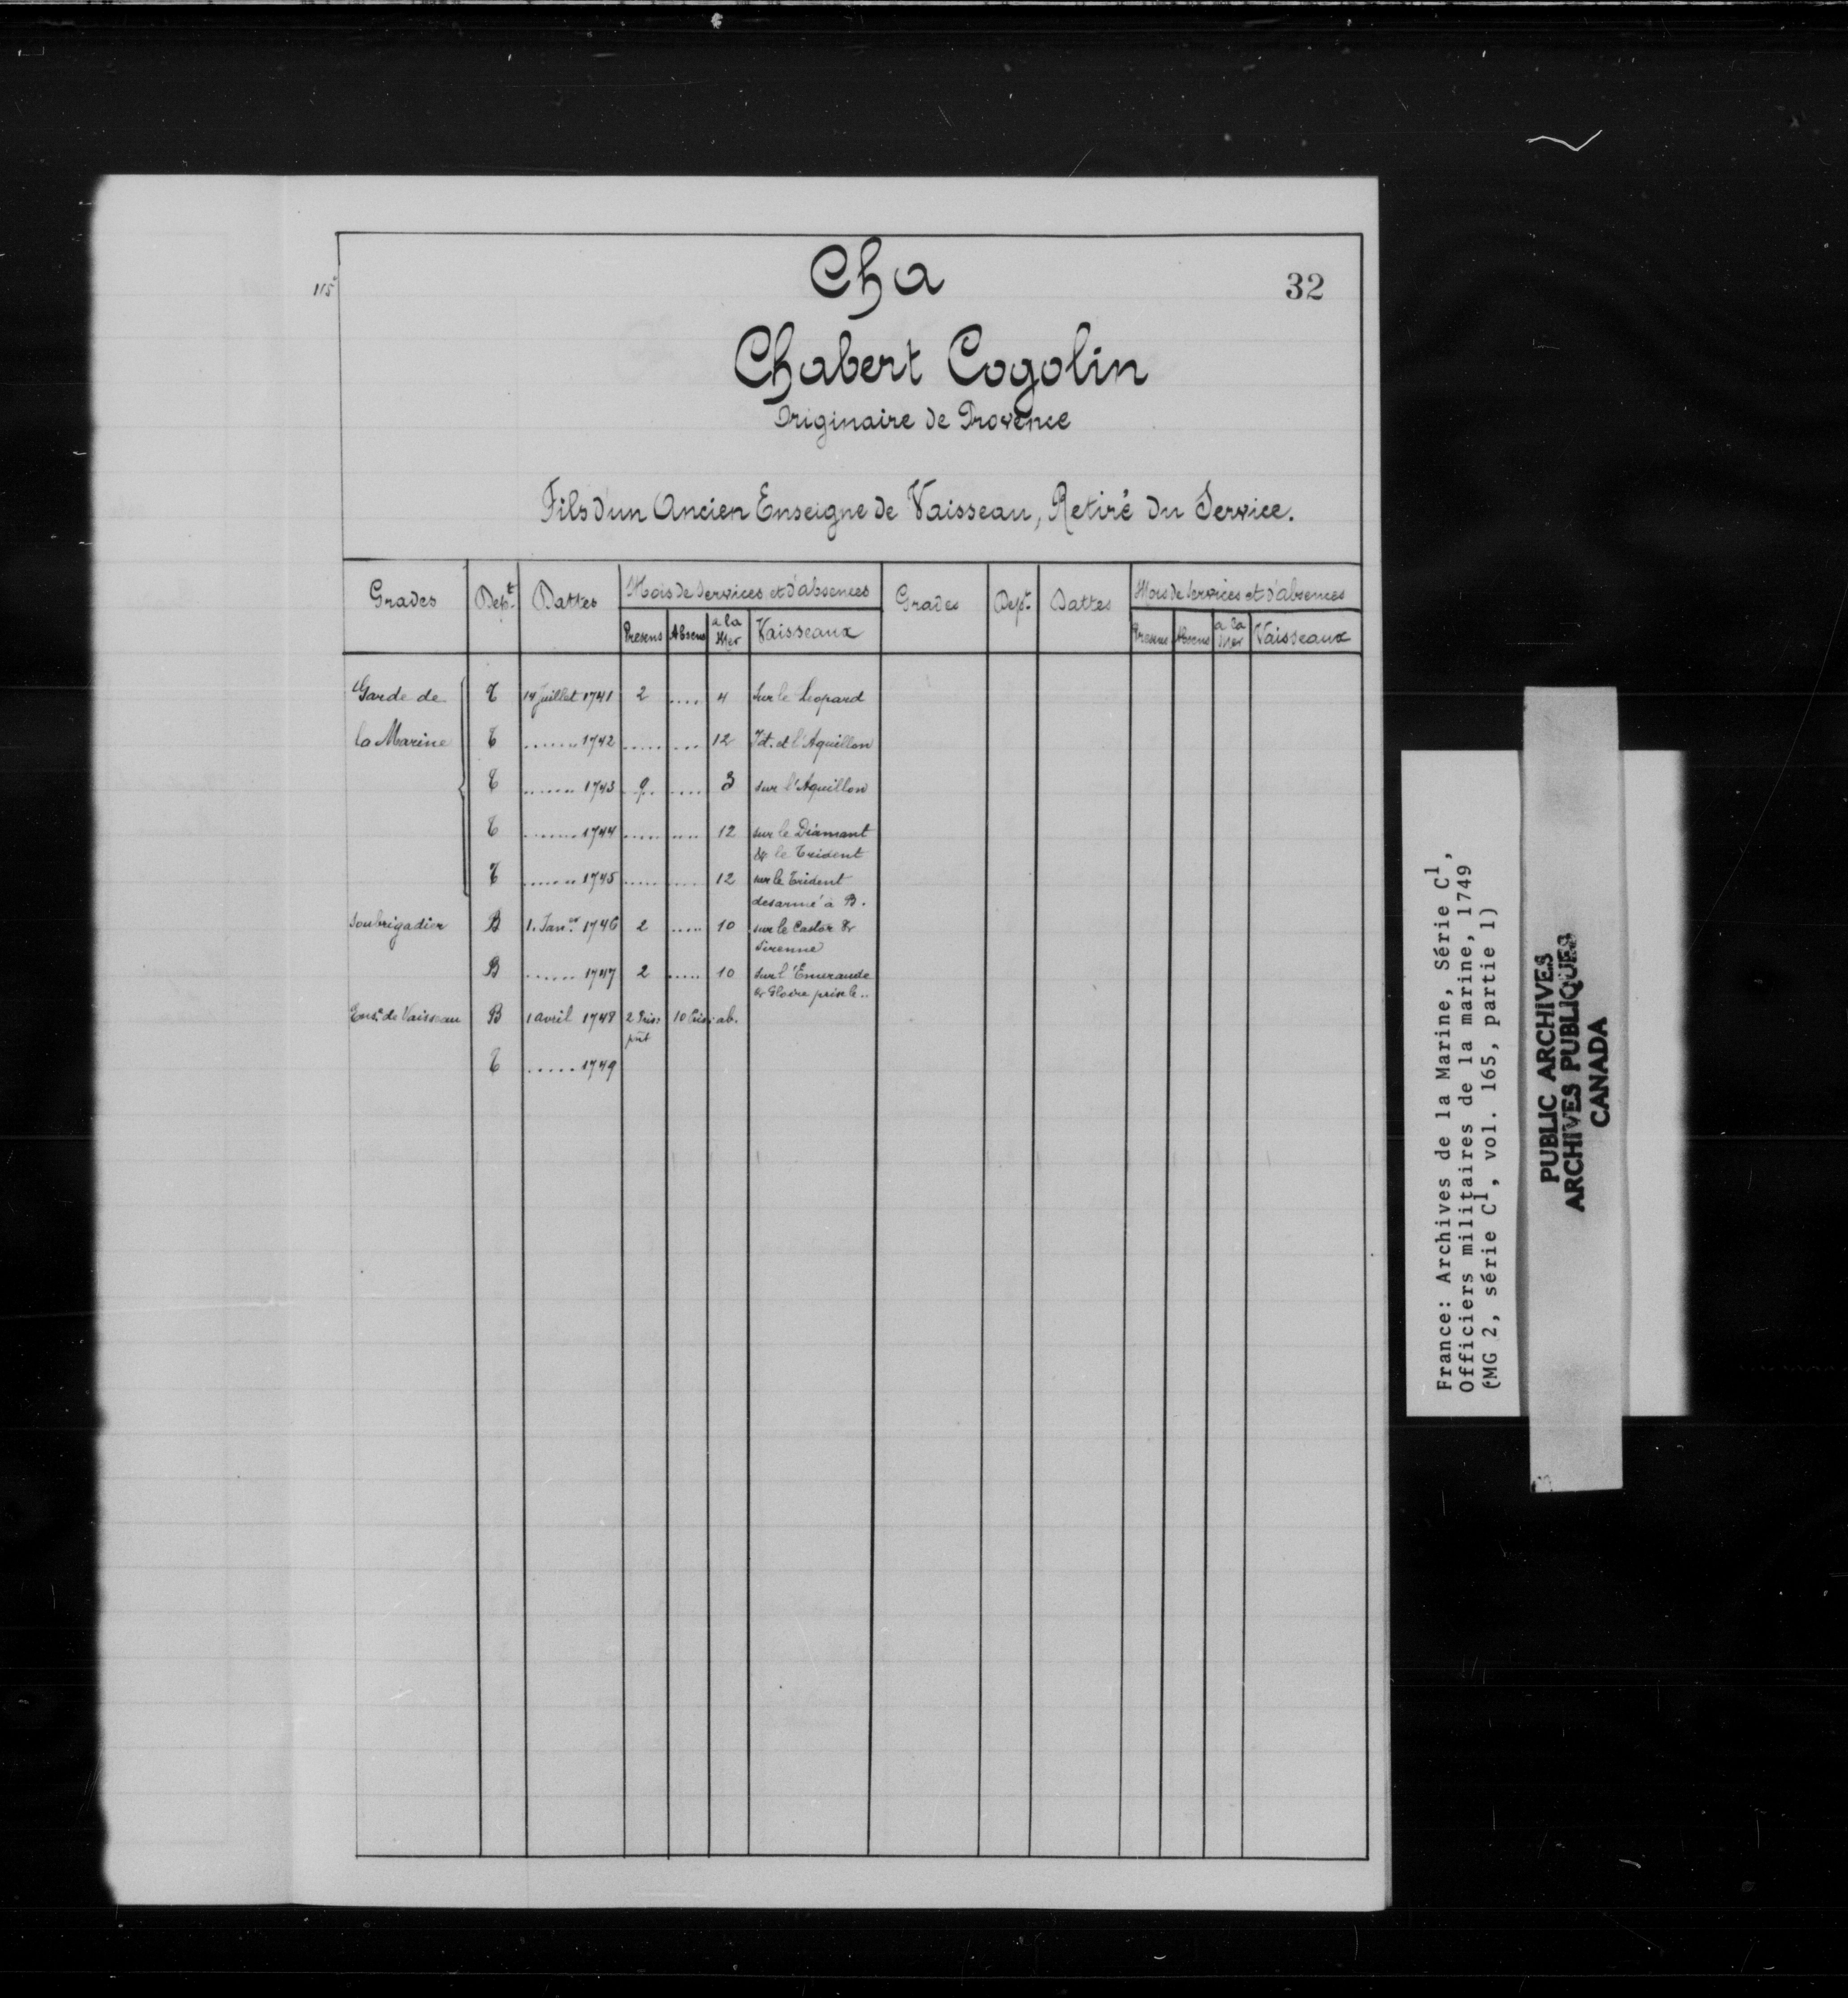 Cha
115
32
Chabert Cogolin
Originaire de Provence
Fils d'un Ancien Enseigne de Vaisseau, Retiré du Service.
Grades Dept. Dattes Mois de Services et d'absences Grades Dept. Dattes Mois de Services et d'absences
Presens Absens a la Mer Vaisseaux Presens Absens a la Mer Vaisseaux
Garde de T 14 Juillet 1741 2 .... 4 Sur le Leopard
la Marine T ....... 1742 ..... .... 12 Id. et l'Aquillon
T ....... 1743 9. .... 3 sur l'Aquillon
T ....... 1744 ..... .... 12 sur le Diamant
& le Trident
T ....... 1745 ..... .... 12 sur le Trident
desarmé à B.
Soubrigadier B 1. Janer. 1746 2 ..... 10 sur le Castor &
Sirenne
B ...... 1747 2 ..... 10 sur l'Emeraude
& Gloire pris le ..
Ense. de Vaisseau B 1 avril 1748 2 Pris: 10 Pris: ab.
pnt
T ..... 1749
France: Archives de la Marine, Série C1,
Officiers militaires de la marine, 1749
(MG 2, série C1, vol. 165, partie 1)
PUBLIC ARCHIVES
ARCHIVES PUBLIQUES
CANADA